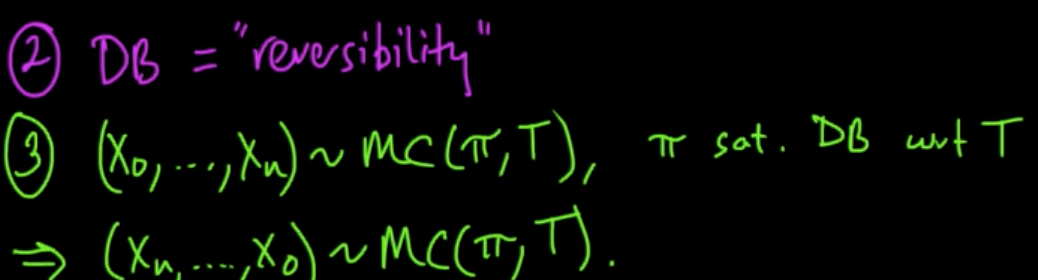 ② DB = "reversibility"
③ (X₀, ..., Xₙ) ~ MC(π, T), π sat. DB wrt T
⇒ (Xₙ, ..., X₀) ~ MC(π, T).